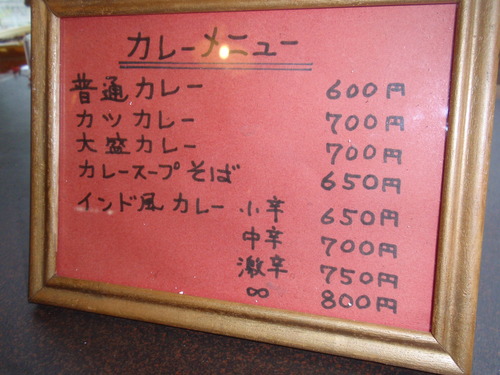 カレーメニュー
普通カレー 600円
カツカレー 700円
大盛カレー 700円
カレースープそば 650円
インド風カレー 小辛 650円
中辛 700円
激辛 750円
∞ 800円